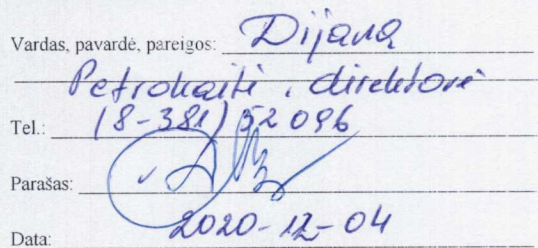 Vardas, pavardė, pareigos: Dijana
Petrokaitė, direktorė
Tel.: (8-381) 52 096
Parašas:
Data: 2020-12-04